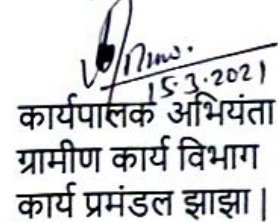 15.3.2021
कार्यपालक अभियंता
ग्रामीण कार्य विभाग
कार्य प्रमंडल झाझा |